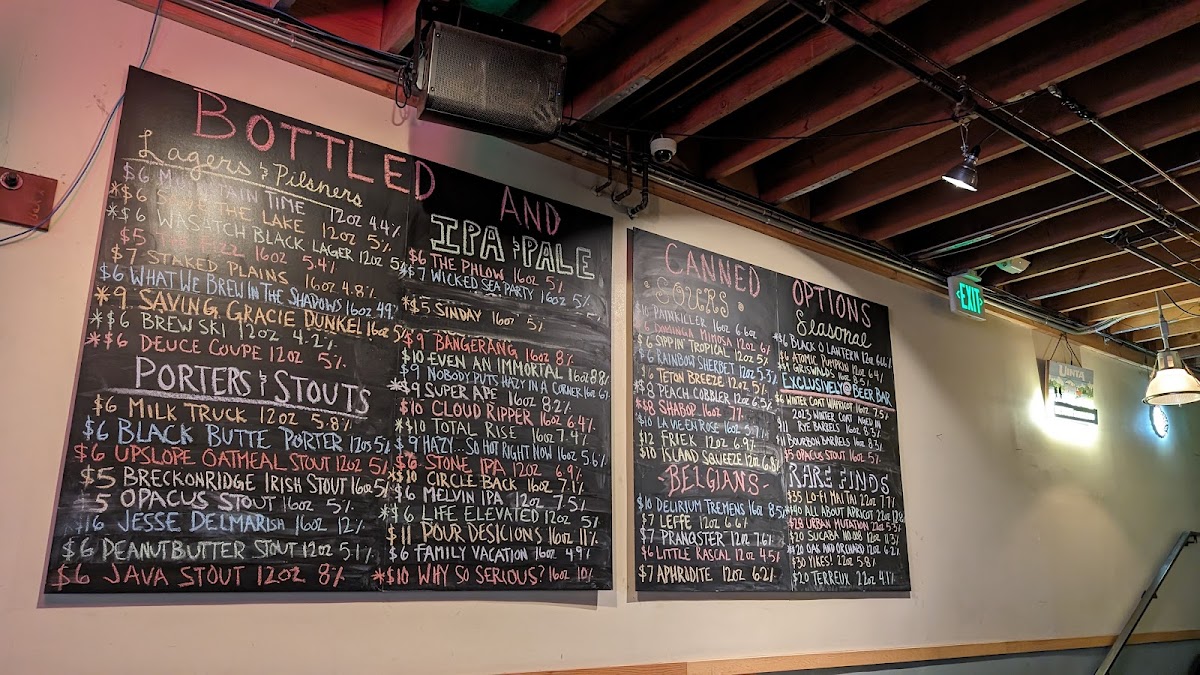 BOTTLED AND
Lagers & Pilsners
$6 MOUNTAIN TIME 12oz 4.4%
*$6 THE LAKE 12oz 5%
*$6 WASATCH BLACK LAGER 12oz 5%
$5 FIZZ 16oz 5.4%
$7 STAKED PLAINS 16oz 4.8%
$6 WHAT WE BREW IN THE SHADOWS 16oz 4.9%
*9 SAVING GRACIE DUNKEL 16oz 5%
*$6 BREW SKI 12oz 4.2%
*$6 DEUCE COUPE 12oz 5%
PORTERS & STOUTS
$6 MILK TRUCK 12oz 5.8%
$6 BLACK BUTTE PORTER 12oz 5%
$6 UPSLOPE OATMEAL STOUT 12oz 5%
$5 BRECKONRIDGE IRISH STOUT 16oz 5%
$5 OPACUS STOUT 16oz 5%
$16 JESSE DELMARISH 16oz 12%
$6 PEANUTBUTTER STOUT 12oz 5.1%
$6 JAVA STOUT 12oz 8%
IPA & PALE
$6 THE PHLOW 16oz 5%
$7 WICKED SEA PARTY 16oz 5%
*$5 SINDAY 16oz 5%
$9 BANGERANG 16oz 8%
$10 EVEN AN IMMORTAL 16oz 8.8%
$9 NOBODY PUTS HAZY IN A CORNER 16oz
$9 SUPER APE 16oz 8.2%
$10 CLOUD RIPPER 16oz 6.4%
*$10 TOTAL RISE 16oz 7.4%
$9 HAZY...SO HOT RIGHT NOW 16oz 5.6%
$6 STONE IPA 12oz 6.9%
*$10 CIRCLE BACK 16oz 7.1%
$6 MELVIN IPA 12oz 7.5%
*$6 LIFE ELEVATED 12oz 5%
$11 POUR DESICIONS 16oz 11%
$6 FAMILY VACATION 16oz 4.9%
*$10 WHY SO SERIOUS? 16oz 10%
CANNED OPTIONS
SOURS
PAINKILLER 16oz 6.6%
DOMINGA MIMOSA 12oz 6%
$6 SIPPIN' TROPICAL 12oz 5%
$6 RAINBOW SHERBET 12oz 5.3%
$6 TETON BREEZE 12oz 5%
$8 PEACH COBBLER 12oz 6.5%
$8 SHABOP 16oz 7%
$10 LA VIE EN ROSE 16oz
$12 FRIEK 12oz 6.9%
$10 ISLAND SQUEEZE 12oz 6.8%
-BELGIANS-
$10 DELIRIUM TREMENS 16oz 8.5%
$7 LEFFE 12oz 6.6%
$7 PRANQSTER 12oz 7.6%
$6 LITTLE RASCAL 12oz 4.5%
$7 APHRODITE 12oz 6.2%
Seasonal
$6 BLACK O LANTERN 12oz
ATOMIC PUMPKIN 12oz 6.4%
GRISWALDS 16oz 8.5%
EXCLUSIVELY @ BEER BAR
$6 WINTER COAT WAPRICOT 16oz 7.5%
2023 WINTER COAT AGED IN
$11 RYE BARRELS 16oz 8.3%
$11 BOURBON BARRELS 16oz 8.3%
$5 OPACUS STOUT 16oz 5%
RARE FINDS
$35 LO-FI MAI TAI 22oz
*$40 ALL ABOUT APRICOT 22oz
$28 URBAN MUTATION 22oz 5.5%
$20 SUCABA NO.008 12oz 11.3%
$20 OAK AND ORCHARD 12oz 6.2%
$30 YIKES! 22oz 5.8%
$20 TERREUX 22oz 4.7%
EXIT
UINTA